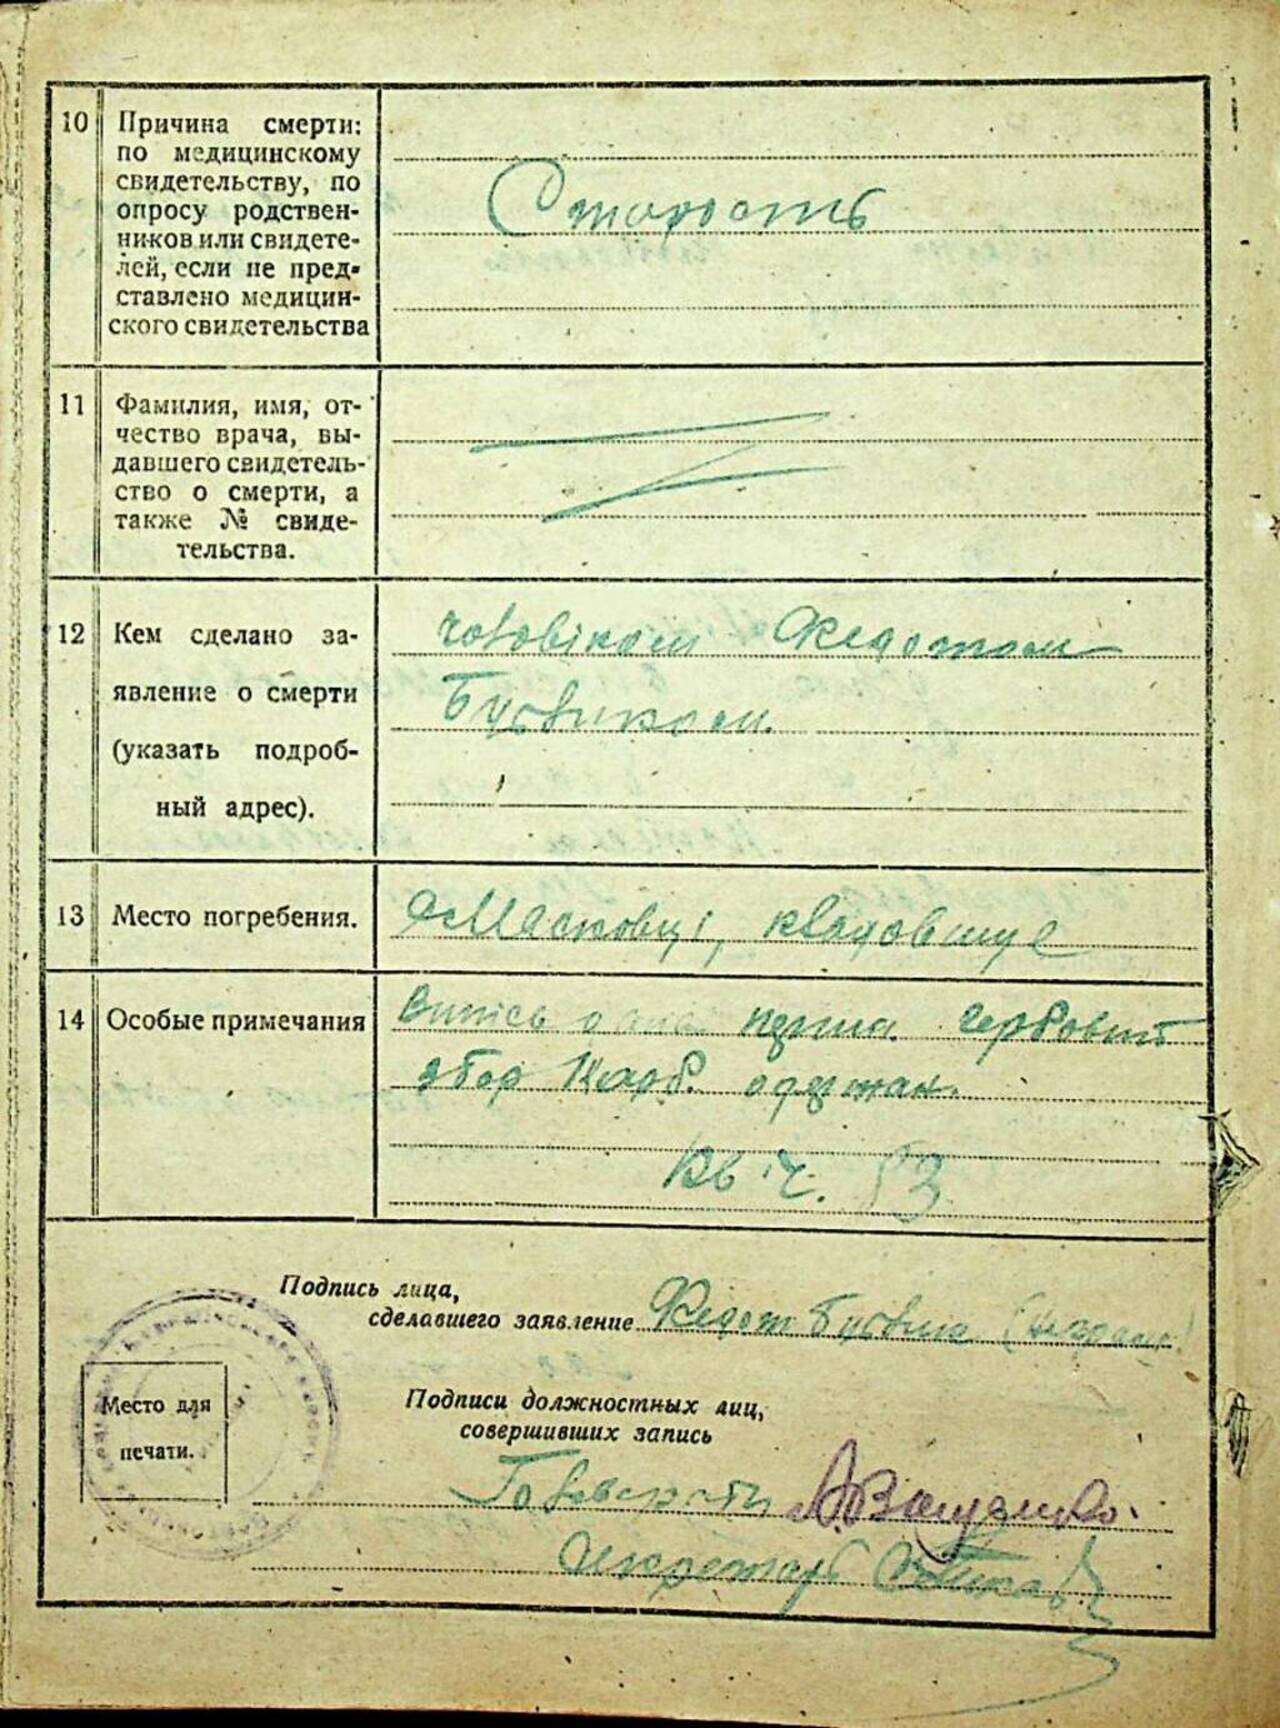 10 Причина смерти:
по медицинскому
свидетельству, по
опросу родствен-
ников или свидете-
лей, если не пред-
ставлено медицин-
ского свидетельства
Старость
11 Фамилия, имя, от-
чество врача, вы-
давшего свидетель-
ство о смерти, а
также № свиде-
тельства.
12 Кем сделано за-
явление о смерти
(указать подроб-
ный адрес).
чоловіком Федотом
13 Место погребения.
кладовище
14 Особые примечания
перша гербовий
збор Карб. одержан.
кв. ч. 53
Подпись лица,
сделавшего заявление Федот
Место для
печати.
Подписи должностных лиц,
совершивших запись
Секретарь